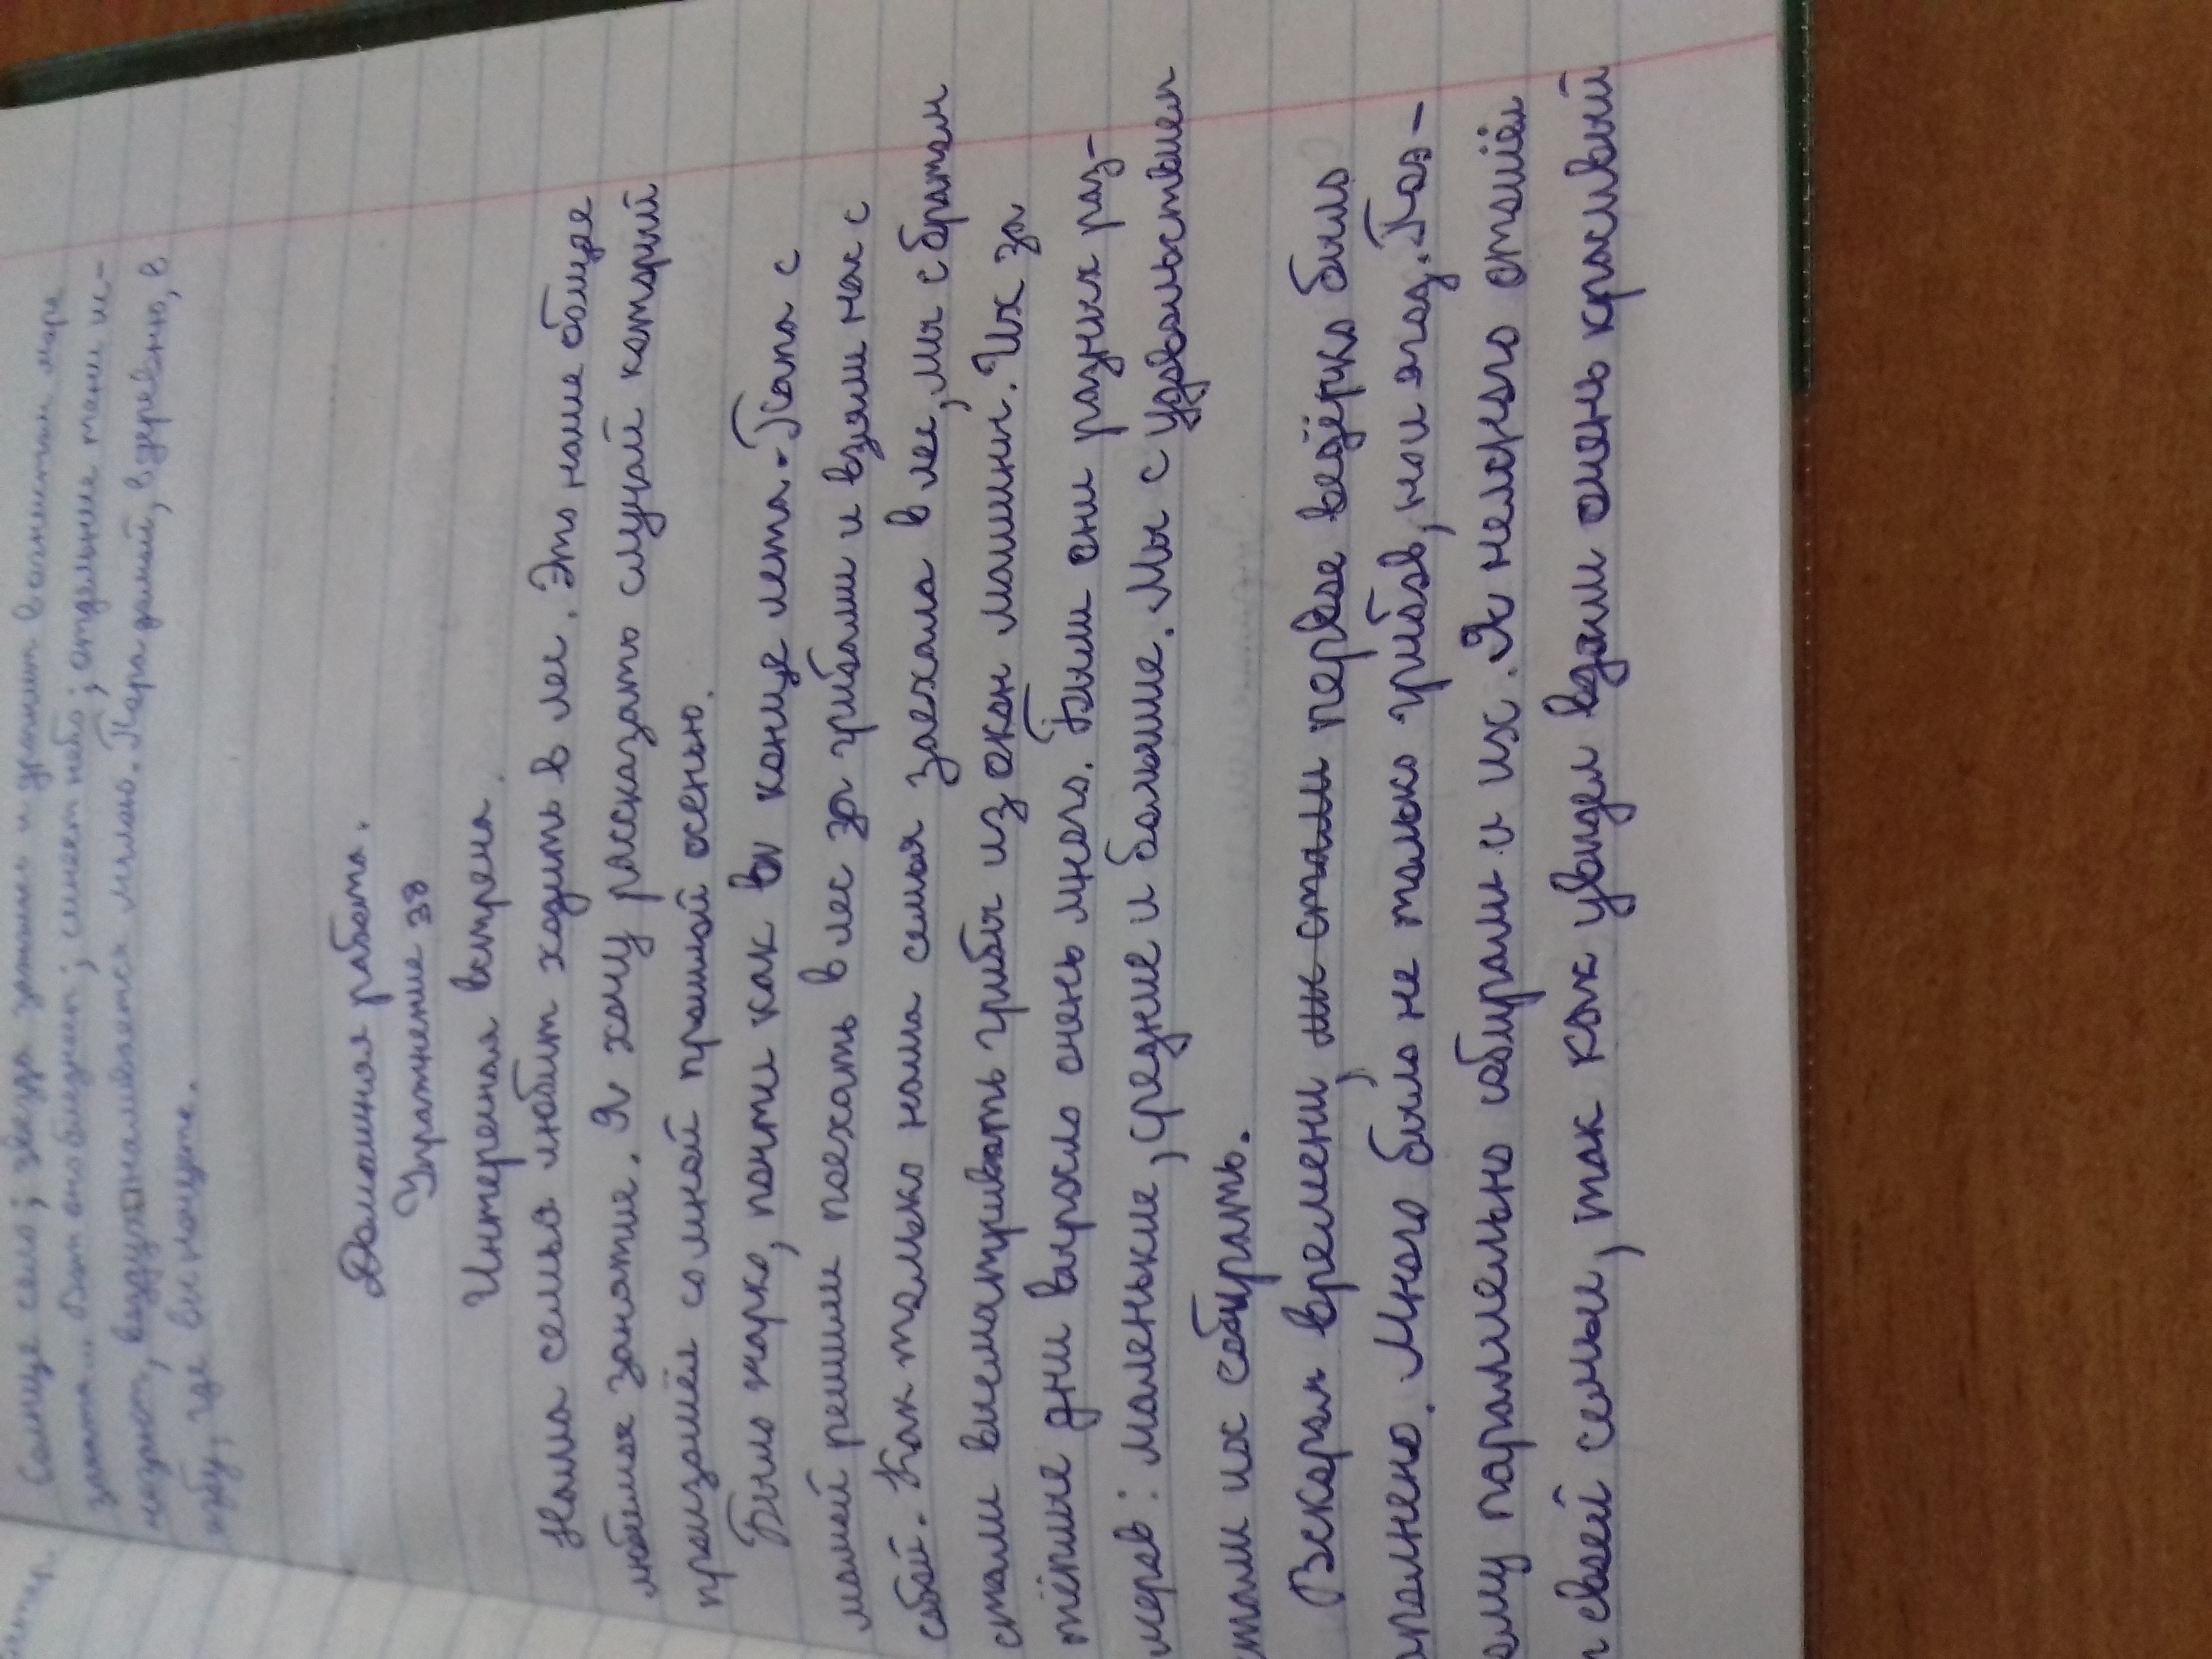 Солнце село; звезда
небо; отдельные тени ис-
чезают, воздух
избу, где вы ночуете.
Домашняя работа.
Упражнение 38
Интересная встреча.
Наша семья любит ходить в лес. Это наше общее
любимое занятие. Я хочу рассказать случай который
произошёл со мной прошлой осенью.
Было жарко, почти как в конце лета. Папа с
мамой решили поехать в лес за грибами и взяли нас с
собой. Как только наша семья заехала в лес, мы с братом
стали высматривать грибы из окон машины. Их за
тёплые дни выросло очень много. Были они разных раз-
меров: маленькие, средние и большие. Мы с удовольствием
стали их собирать.
Вскором времени, мы стали первое ведёрко было
аполнено. Много было не только грибов, но и ягод. Поэ-
ому параллельно собирали и их. Я немного отошёл
т своей семьи, так как увидел вдали очень красивый